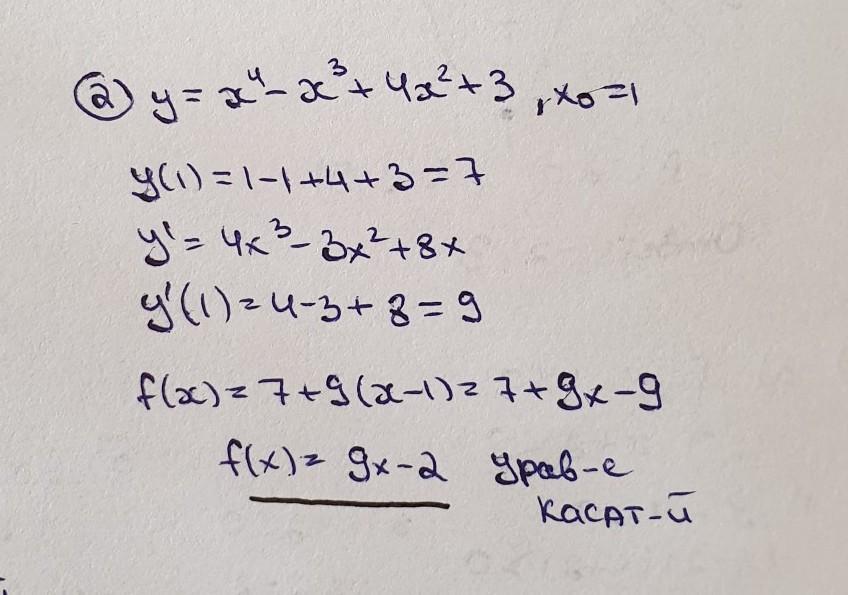 2) y = x⁴ - x³ + 4x² + 3, x₀ = 1
y(1) = 1 - 1 + 4 + 3 = 7
y' = 4x³ - 3x² + 8x
y'(1) = 4 - 3 + 8 = 9
f(x) = 7 + 9(x - 1) = 7 + 9x - 9
f(x) = 9x - 2 урав-е
касат-й